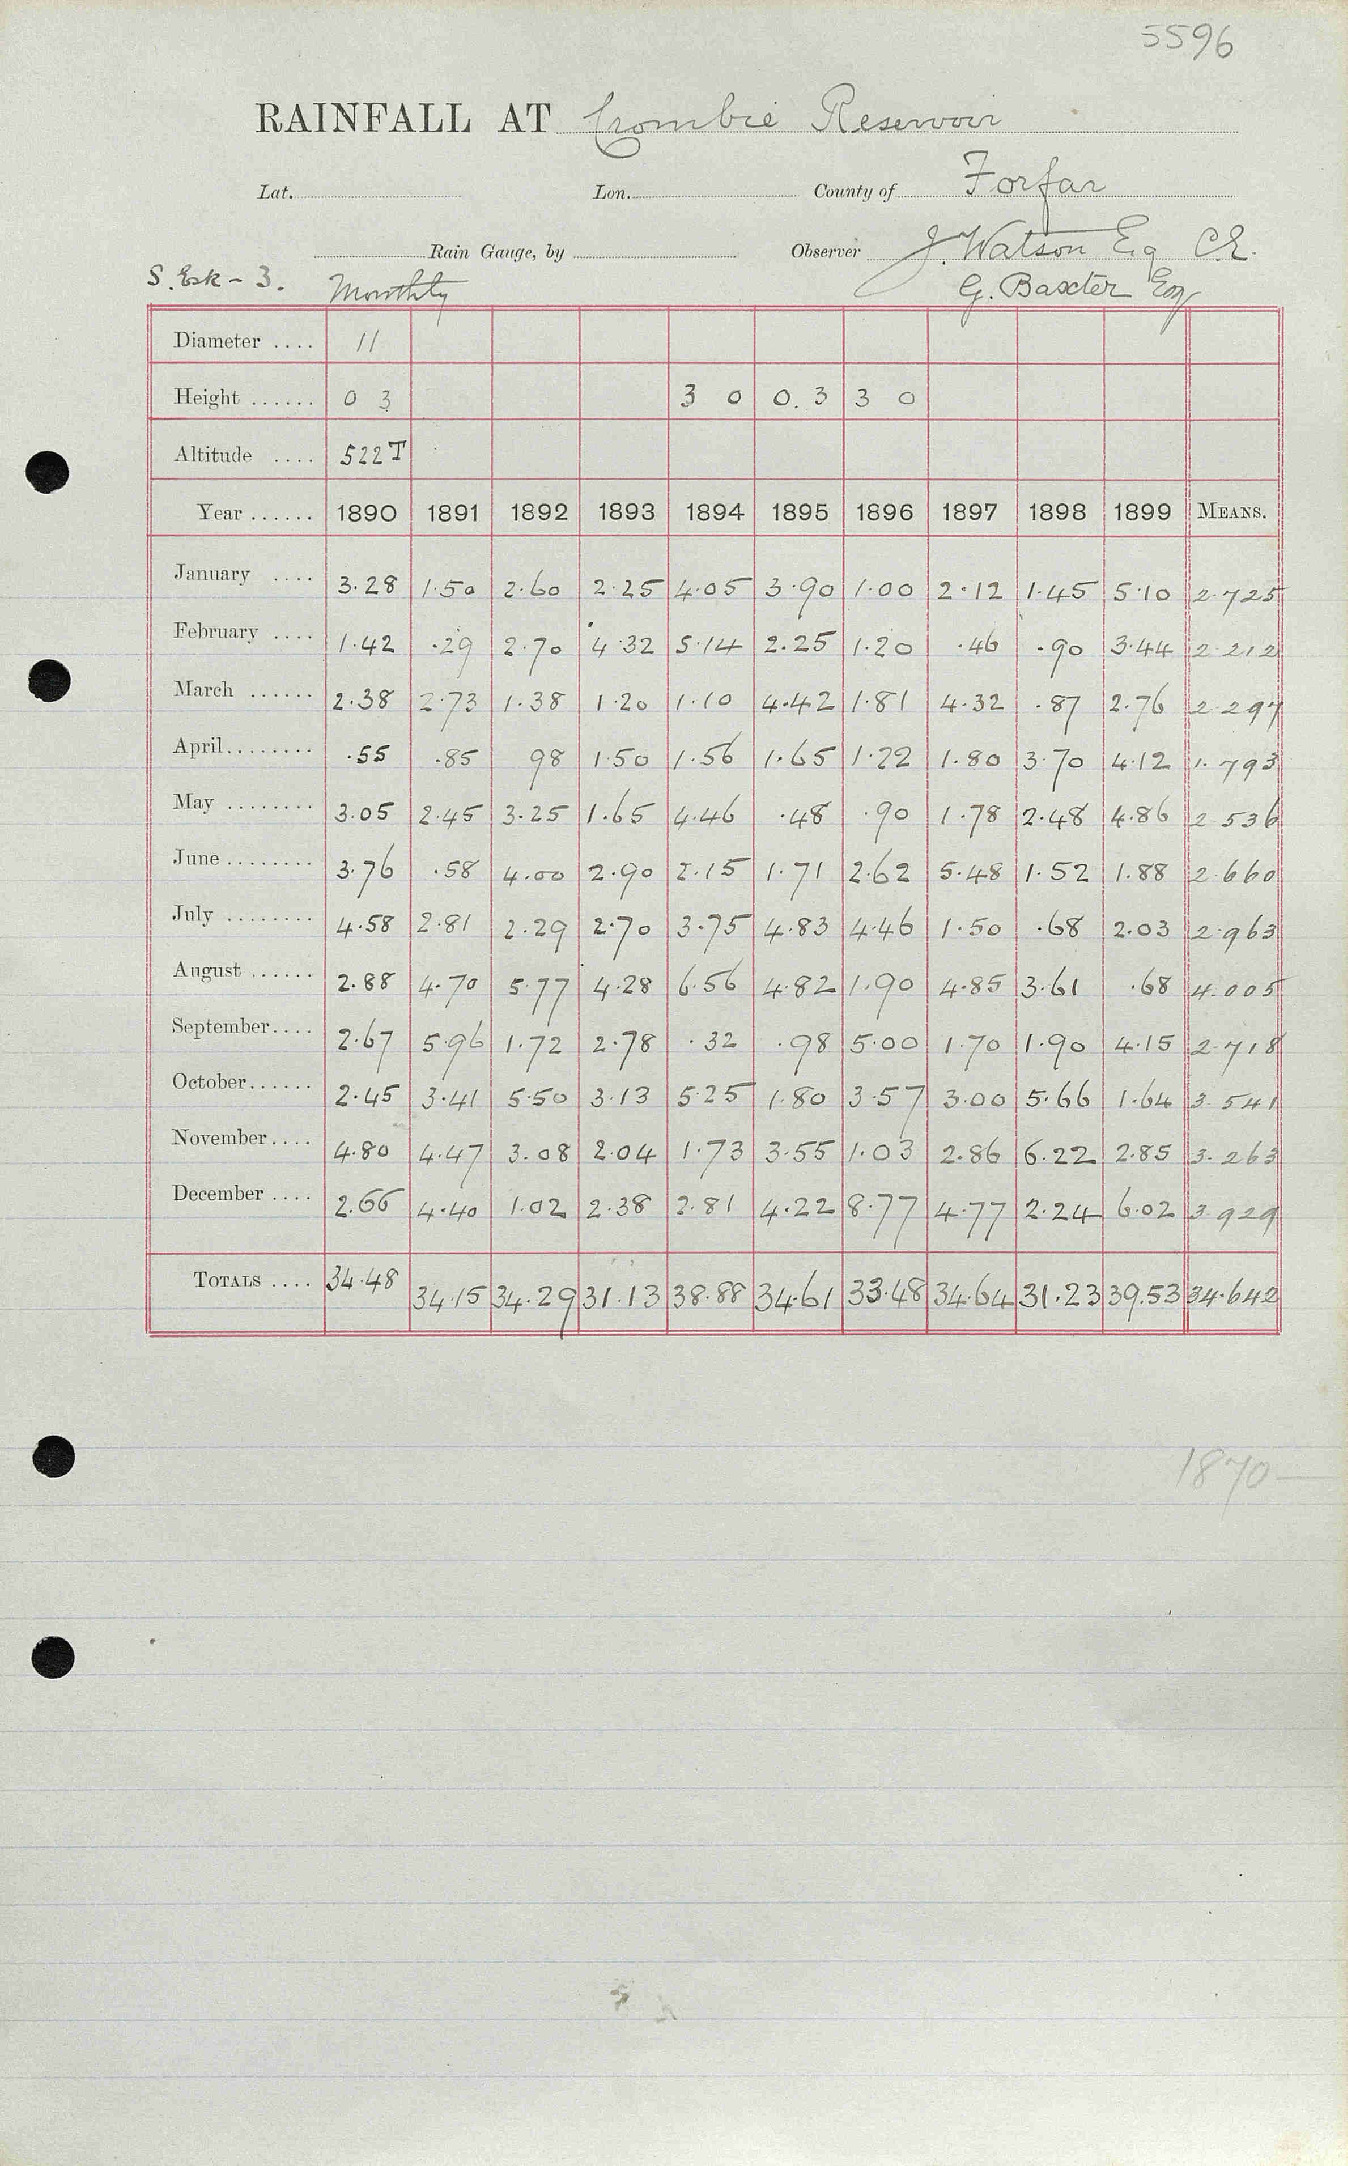 5596
RAINFALL AT Crombie Reservoir
Lat. Lon. County of Forfar
Rain Gauge, by Observer J. Watson Esq C.E.
S. Esk - 3. Monthly G. Baxter Esq
Diameter .... 11
Height ...... 0 3 3 0 0.3 3 0
Altitude .... 522 T
Year ...... 1890 1891 1892 1893 1894 1895 1896 1897 1898 1899 MEANS.
January .... 3.28 1.50 2.60 2.25 4.05 3.90 1.00 2.12 1.45 5.10 2.725
February .... 1.42 .29 2.70 4.32 5.14 2.25 1.20 .46 .90 3.44 2.212
March ...... 2.38 2.73 1.38 1.20 1.10 4.42 1.81 4.32 .87 2.76 2.297
April ........ .55 .85 98 1.50 1.56 1.65 1.22 1.80 3.70 4.12 1.793
May ........ 3.05 2.45 3.25 1.65 4.46 .48 .90 1.78 2.48 4.86 2.536
June ........ 3.76 .58 4.00 2.90 2.15 1.71 2.62 5.48 1.52 1.88 2.660
July ........ 4.58 2.81 2.29 2.70 3.75 4.83 4.46 1.50 .68 2.03 2.963
August ...... 2.88 4.70 5.77 4.28 6.56 4.82 1.90 4.85 3.61 .68 4.005
September .... 2.67 5.96 1.72 2.78 .32 .98 5.00 1.70 1.90 4.15 2.718
October ...... 2.45 3.41 5.50 3.13 5.25 1.80 3.57 3.00 5.66 1.64 3.541
November .... 4.80 4.47 3.08 2.04 1.73 3.55 1.03 2.86 6.22 2.85 3.263
December .... 2.66 4.40 1.02 2.38 2.81 4.22 8.77 4.77 2.24 6.02 3.929
TOTALS .... 34.48 34.15 34.29 31.13 38.88 34.61 33.48 34.64 31.23 39.53 34.642
1870—